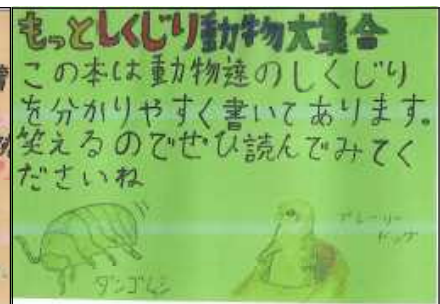 もっとしくじり動物大集合
この本は動物達のしくじり
を分かりやすく書いてあります。
笑えるのでぜひ読んでみてく
ださいね
ダンゴムシ
プレーリー
ドッグ